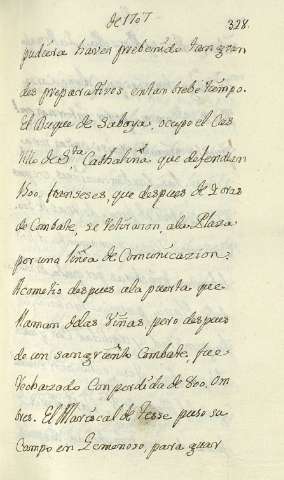 de 1707
328.
pudiera haver prebenido tan gran
des preparativos en tan brebe tiempo.
El Duque de Saboya, ocupo el Cas
tillo de Sta Cathalina que defendian
300. franseses, que despues de 2 oras
de Combate, se retiraron, a la Plaza
por una linea de Comunicazion.
Acometio despues a la puerta que
llaman de las Viñas, pero despues
de un sangriento Combate, fue
rechazado Con perdida de 800. Om
bres. El Mariscal de Tesse puso su
Campo en , para guar